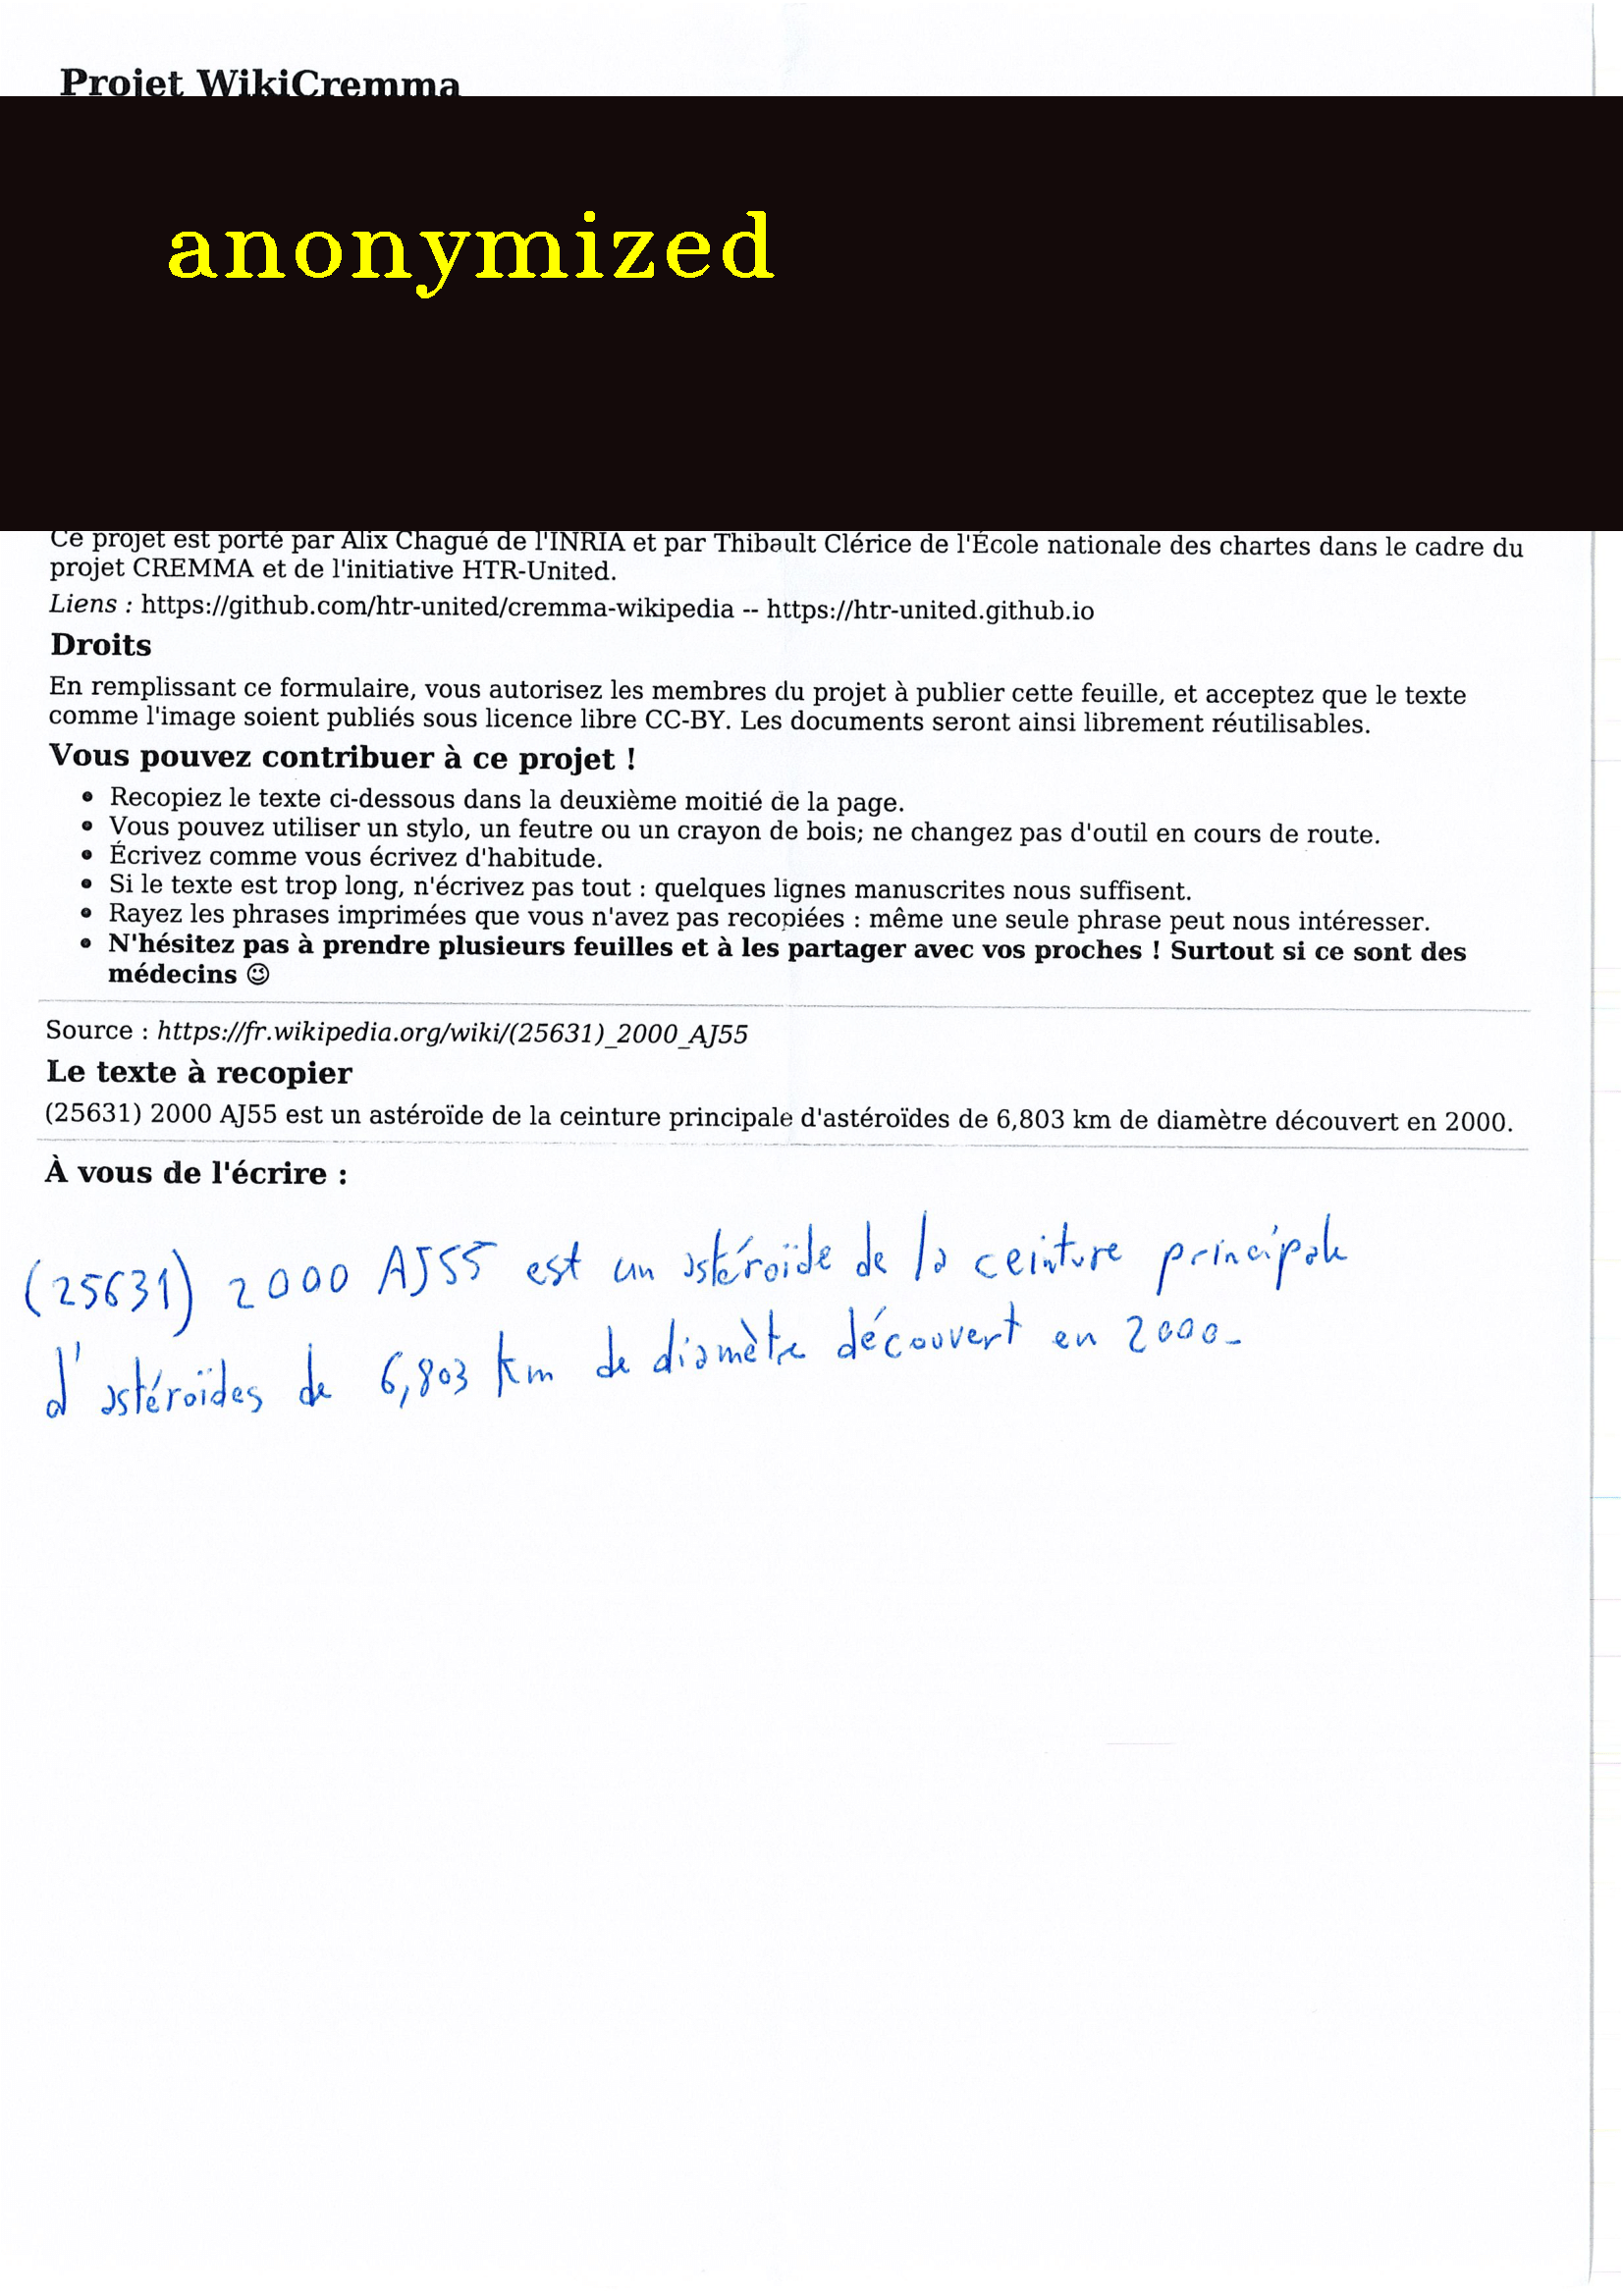 Projet WikiCremma
anonymized
Ce projet est porté par Alix Chagué de l'INRIA et par Thibault Clérice de l'École nationale des chartes dans le cadre du
projet CREMMA et de l'initiative HTR-United.
Liens : https://github.com/htr-united/cremma-wikipedia -- https://htr-united.github.io
Droits
En remplissant ce formulaire, vous autorisez les membres du projet à publier cette feuille, et acceptez que le texte
comme l'image soient publiés sous licence libre CC-BY. Les documents seront ainsi librement réutilisables.
Vous pouvez contribuer à ce projet !
• Recopiez le texte ci-dessous dans la deuxième moitié de la page.
• Vous pouvez utiliser un stylo, un feutre ou un crayon de bois; ne changez pas d'outil en cours de route.
• Écrivez comme vous écrivez d'habitude.
• Si le texte est trop long, n'écrivez pas tout : quelques lignes manuscrites nous suffisent.
• Rayez les phrases imprimées que vous n'avez pas recopiées : même une seule phrase peut nous intéresser.
• N'hésitez pas à prendre plusieurs feuilles et à les partager avec vos proches ! Surtout si ce sont des
médecins 😉
Source : https://fr.wikipedia.org/wiki/(25631)_2000_AJ55
Le texte à recopier
(25631) 2000 AJ55 est un astéroïde de la ceinture principale d'astéroïdes de 6,803 km de diamètre découvert en 2000.
À vous de l'écrire :
(25631) 2000 AJ55 est un astéroïde de la ceinture principale
d'astéroïdes de 6,803 km de diamètre découvert en 2000.